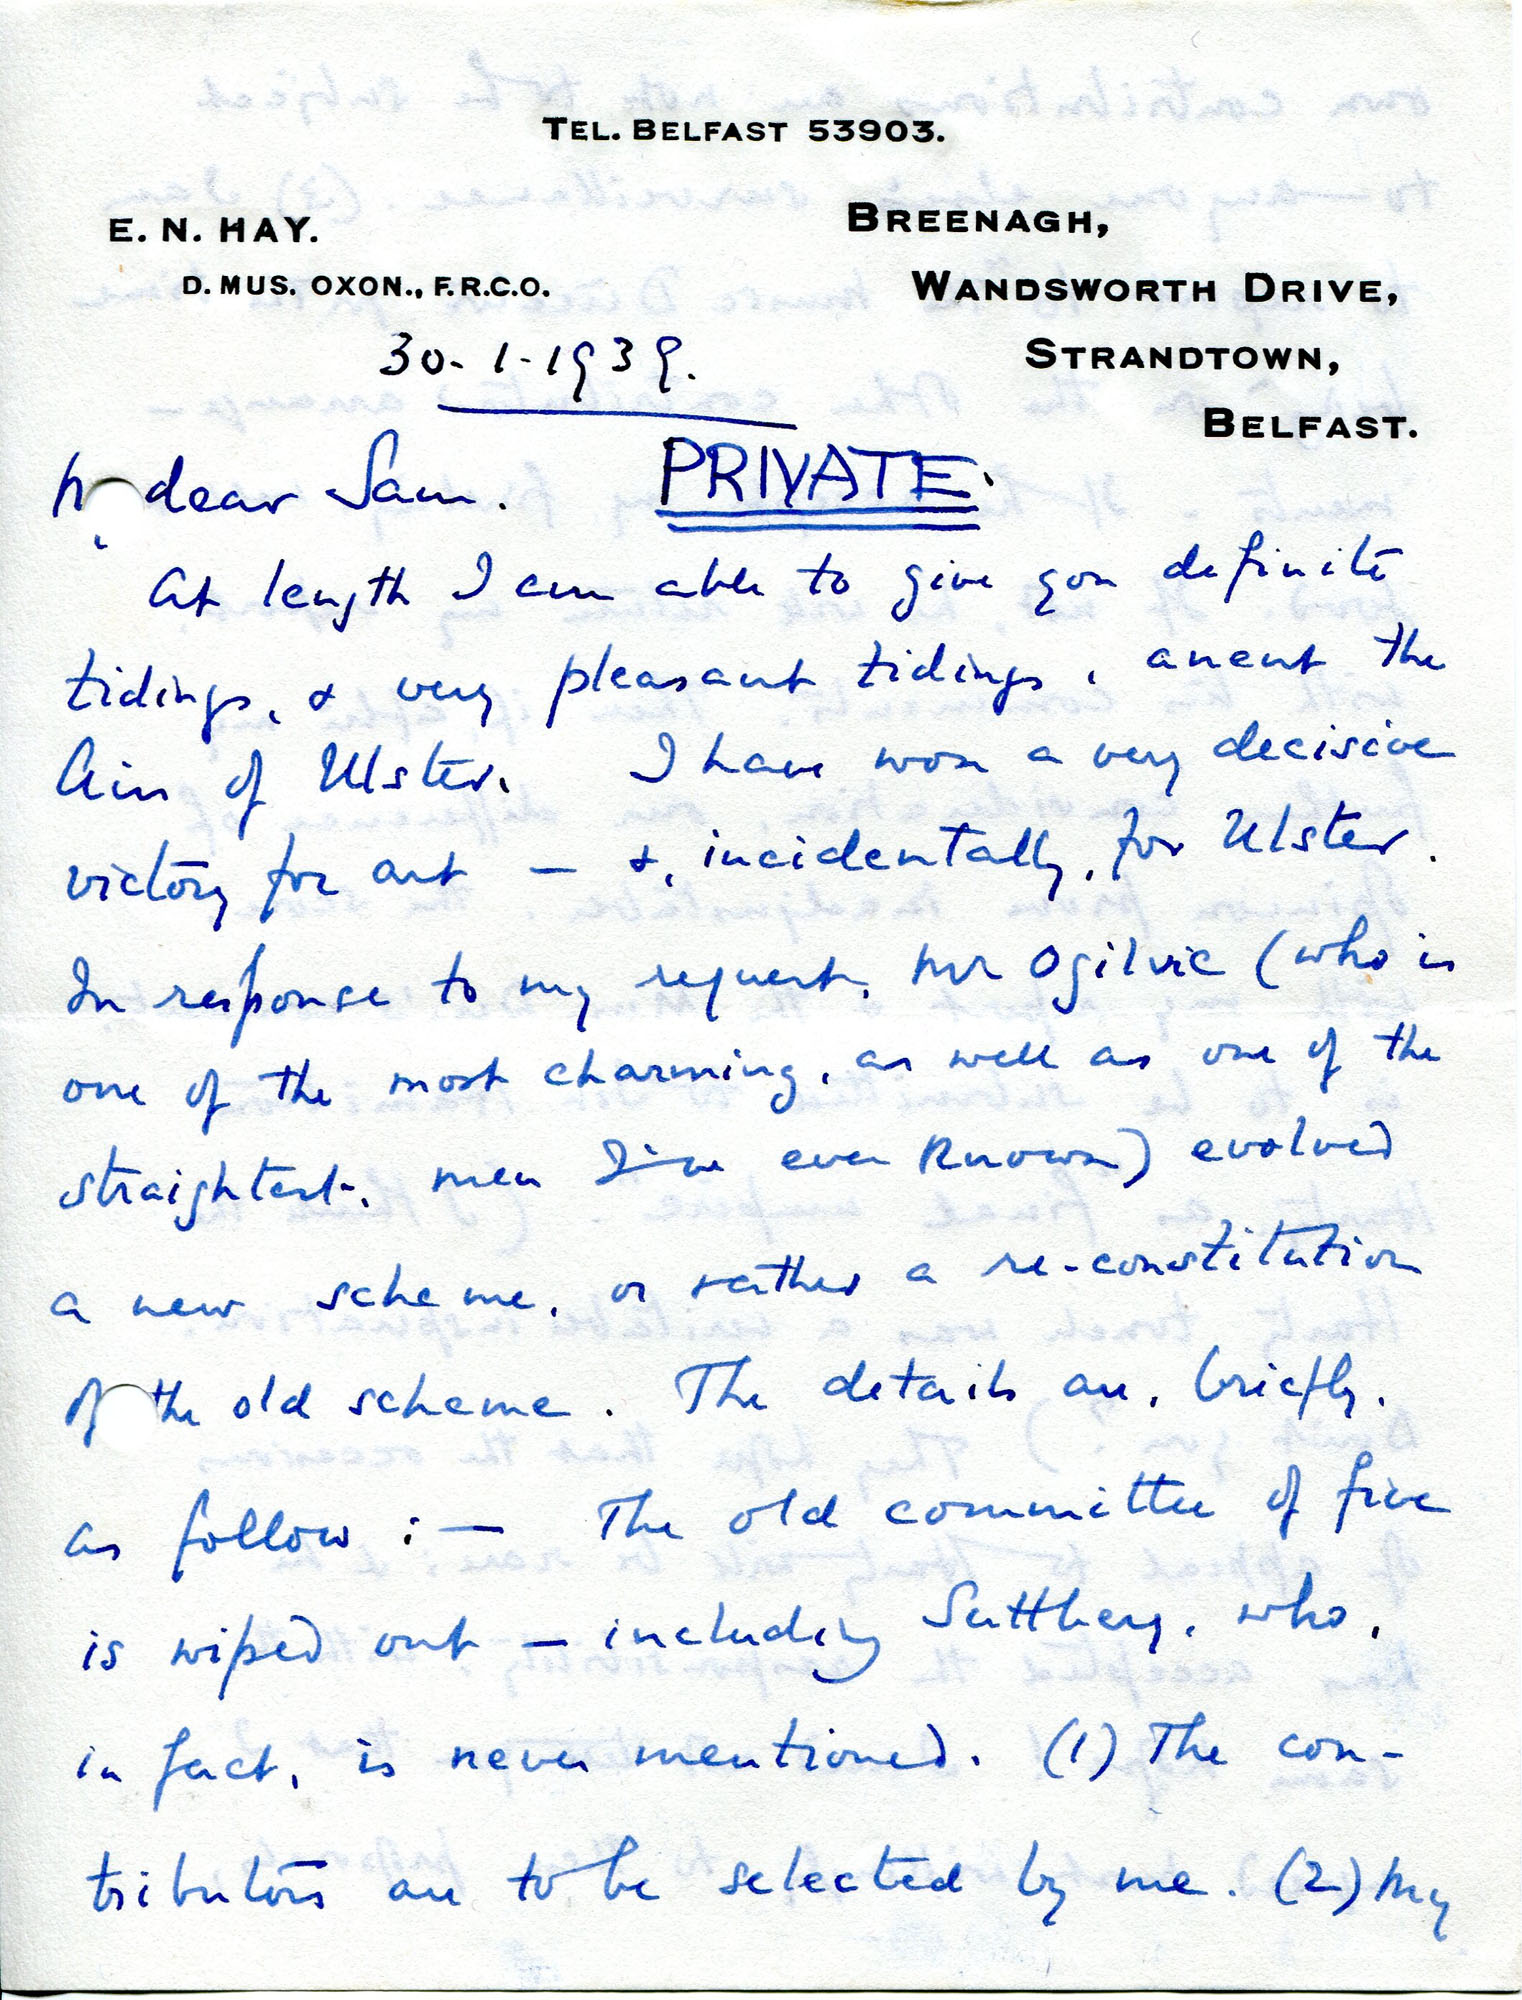 TEL. BELFAST 53903.
E. N. HAY.
D. MUS. OXON., F.R.C.O.
BREENAGH,
WANDSWORTH DRIVE,
STRANDTOWN,
BELFAST.
30-1-1939.
dear Sam. PRIVATE.
At length I am able to give you definite
tidings, & very pleasant tidings, anent the
Airs of Ulster. I have won a very decisive
victory for art — &, incidentally, for Ulster.
In response to my request, Mr Ogilvie (who is
one of the most charming, as well as one of the
straightest, men I've ever known) evolved
a new scheme, or rather a re-constitution
of the old scheme. The details are, briefly,
as follow :— The old committee of five
is wiped out — including Sutthery, who,
in fact, is never mentioned. (1) The con-
tributors are to be selected by me. (2) My